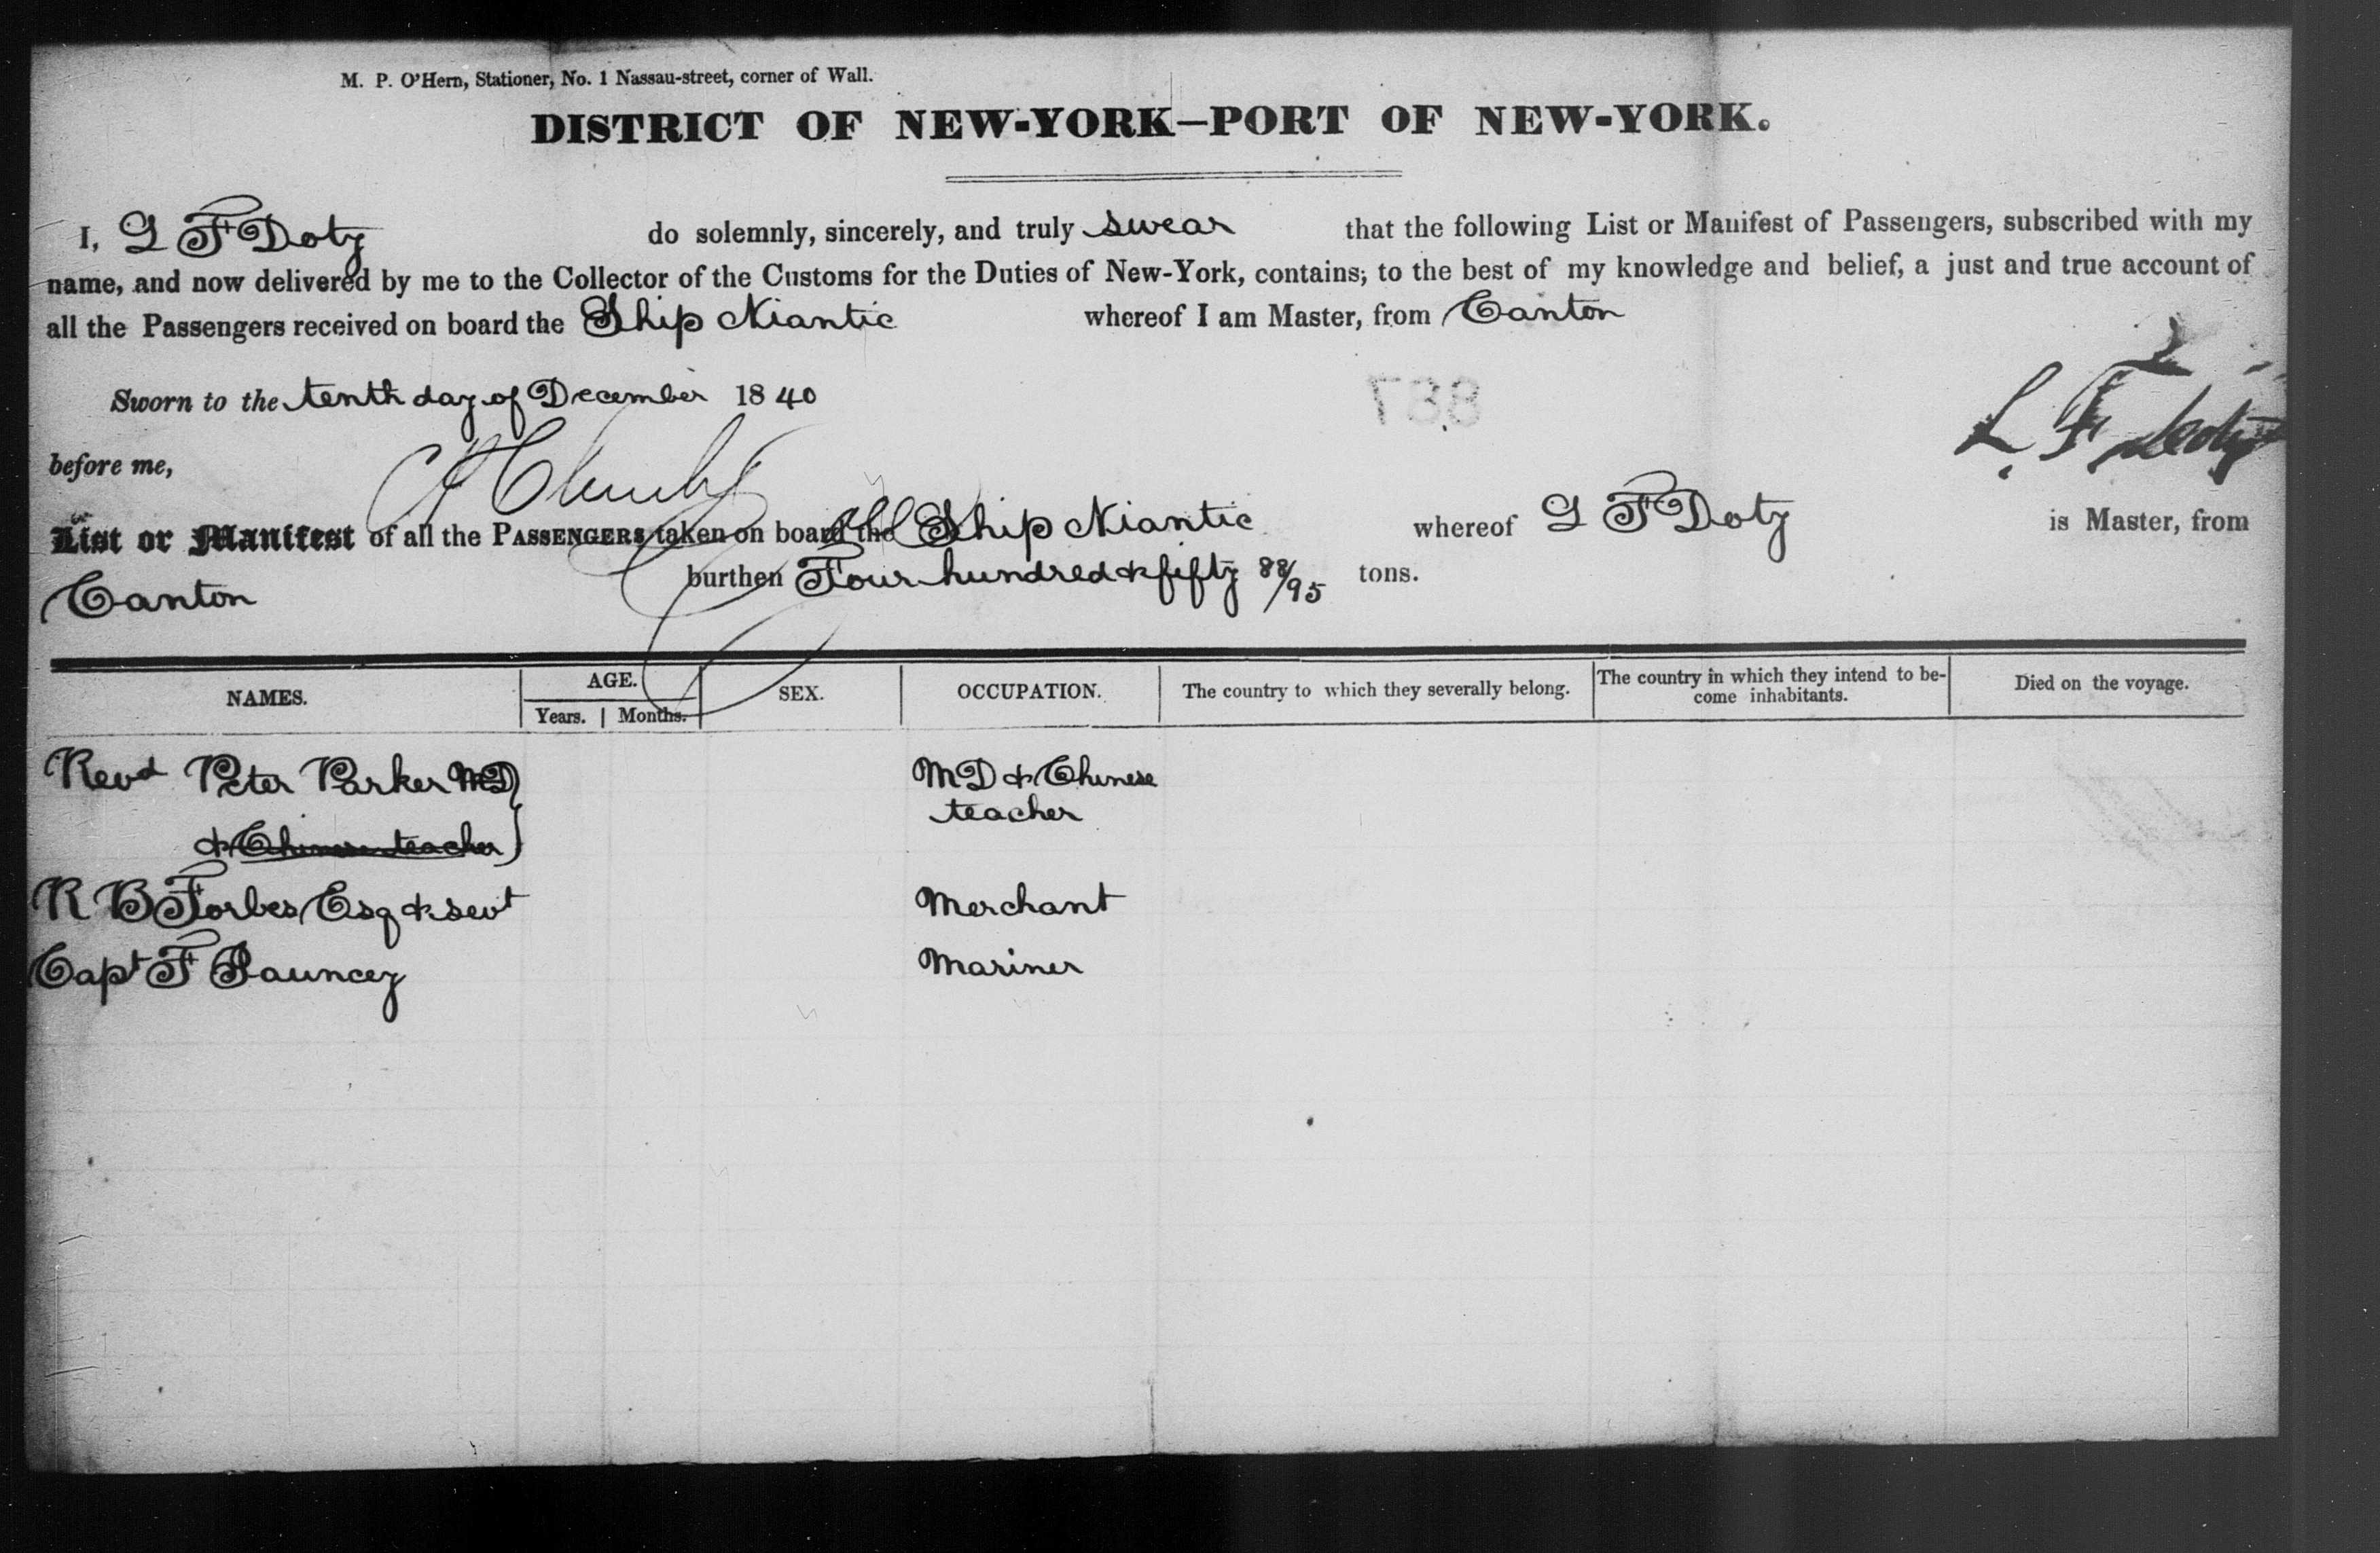 M. P. O'Hern, Stationer, No. 1 Nassau-street, corner of Wall.
DISTRICT OF NEW-YORK—PORT OF NEW-YORK.
I, L F Doty do solemnly, sincerely, and truly swear that the following List or Manifest of Passengers, subscribed with my
name, and now delivered by me to the Collector of the Customs for the Duties of New-York, contains, to the best of my knowledge and belief, a just and true account of
all the Passengers received on board the Ship Niantic whereof I am Master, from Canton
Sworn to the tenth day of December 1840
887
L. F. Doty
before me,
List or Manifest of all the PASSENGERS taken on board the Ship Niantic whereof L F Doty is Master, from
Canton burthen Four hundred & fifty 88/95 tons.
NAMES. AGE. SEX. OCCUPATION. The country to which they severally belong. The country in which they intend to be-
come inhabitants. Died on the voyage.
Years. Months.
Revd Peter Parker MD MD & Chinese
teacher
& Chinese teacher
R B Forbes Esq & sevt Merchant
Capt F Jauncey Mariner